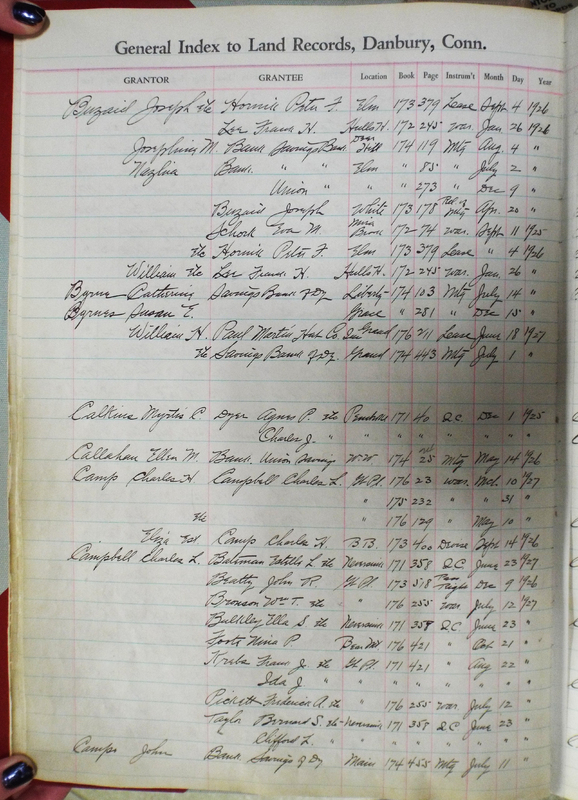 General Index to Land Records, Danbury, Conn.
GRANTOR GRANTEE Location Book Page Instrum't Month Day Year
Buzaid Joseph etc Hornik Peter F. Elm 173 379 Lease Sept 4 1926
Lee Frank H. Hulls H. 172 245 War. Jan 26 1926
Josephine M. Bank Savings Bank Deer Hill 174 119 Mtg Aug 4 "
Nazlia Bank " " Elm " 85 " July 2 "
Union " " " 273 " Dec 9 "
Buzaid Joseph White 173 178 Rel. of Mtg Apr. 20 "
Schork Eva M. Main Brook 172 74 War. Sept 11 1925
etc Hornik Peter F. Elm 173 379 Lease " 4 1926
William etc Lee Frank H. Hulls H. 172 245 War. Jan. 26 "
Byrne Catherine Savings Bank of Dy. Liberty 174 103 Mtg July 14 "
Byrnes Susan E. Grace " 281 " Dec 15 "
William H. Paul Martin Hat Co. Inc Grand 176 211 Lease June 18 1927
etc Savings Bank of Dy. Grand 174 443 Mtg July 1 "
Calkins Myrtis C. Dyer Agnes P. etc Pembroke 171 40 Q.C. Dec 1 1925
Charles J. " " " " " " " "
Callahan Ellen M. Bank Union Saving W.W. 174 25 Mtg May 14 1926
Camp Charles H. Campbell Charles L. Gt. Pl. 176 23 War. Mch 10 1927
" 175 232 " " 31 "
etc " 176 129 " May 10 "
Eliza Est Camp Charles H. B.B. 173 400 Devise Sept 14 1926
Campbell Charles L. Bateman Estelle L. etc Neversink 171 358 Q.C. June 23 1927
Beatty John R. Gt. Pl. 173 518 Dec 9 1926
Bronson Wm T. etc " 176 255 War. July 12 1927
Bulkley Ella S. etc Neversink 171 358 Q.C. June 23 "
Foote Nina P. 176 421 " Oct 21 "
Krebs Frank J. etc Gt. Pl. 171 421 " Aug 22 "
Ida J. " " " " " " " "
Pickett Frederick A. etc " 176 255 War. July 12 "
Taylor Bernard S. etc Neversink 171 358 Q.C. June 23 "
Clifford L. " " " " " " "
Camps John Bank Savings of Dy Main 174 455 Mtg July 11 "